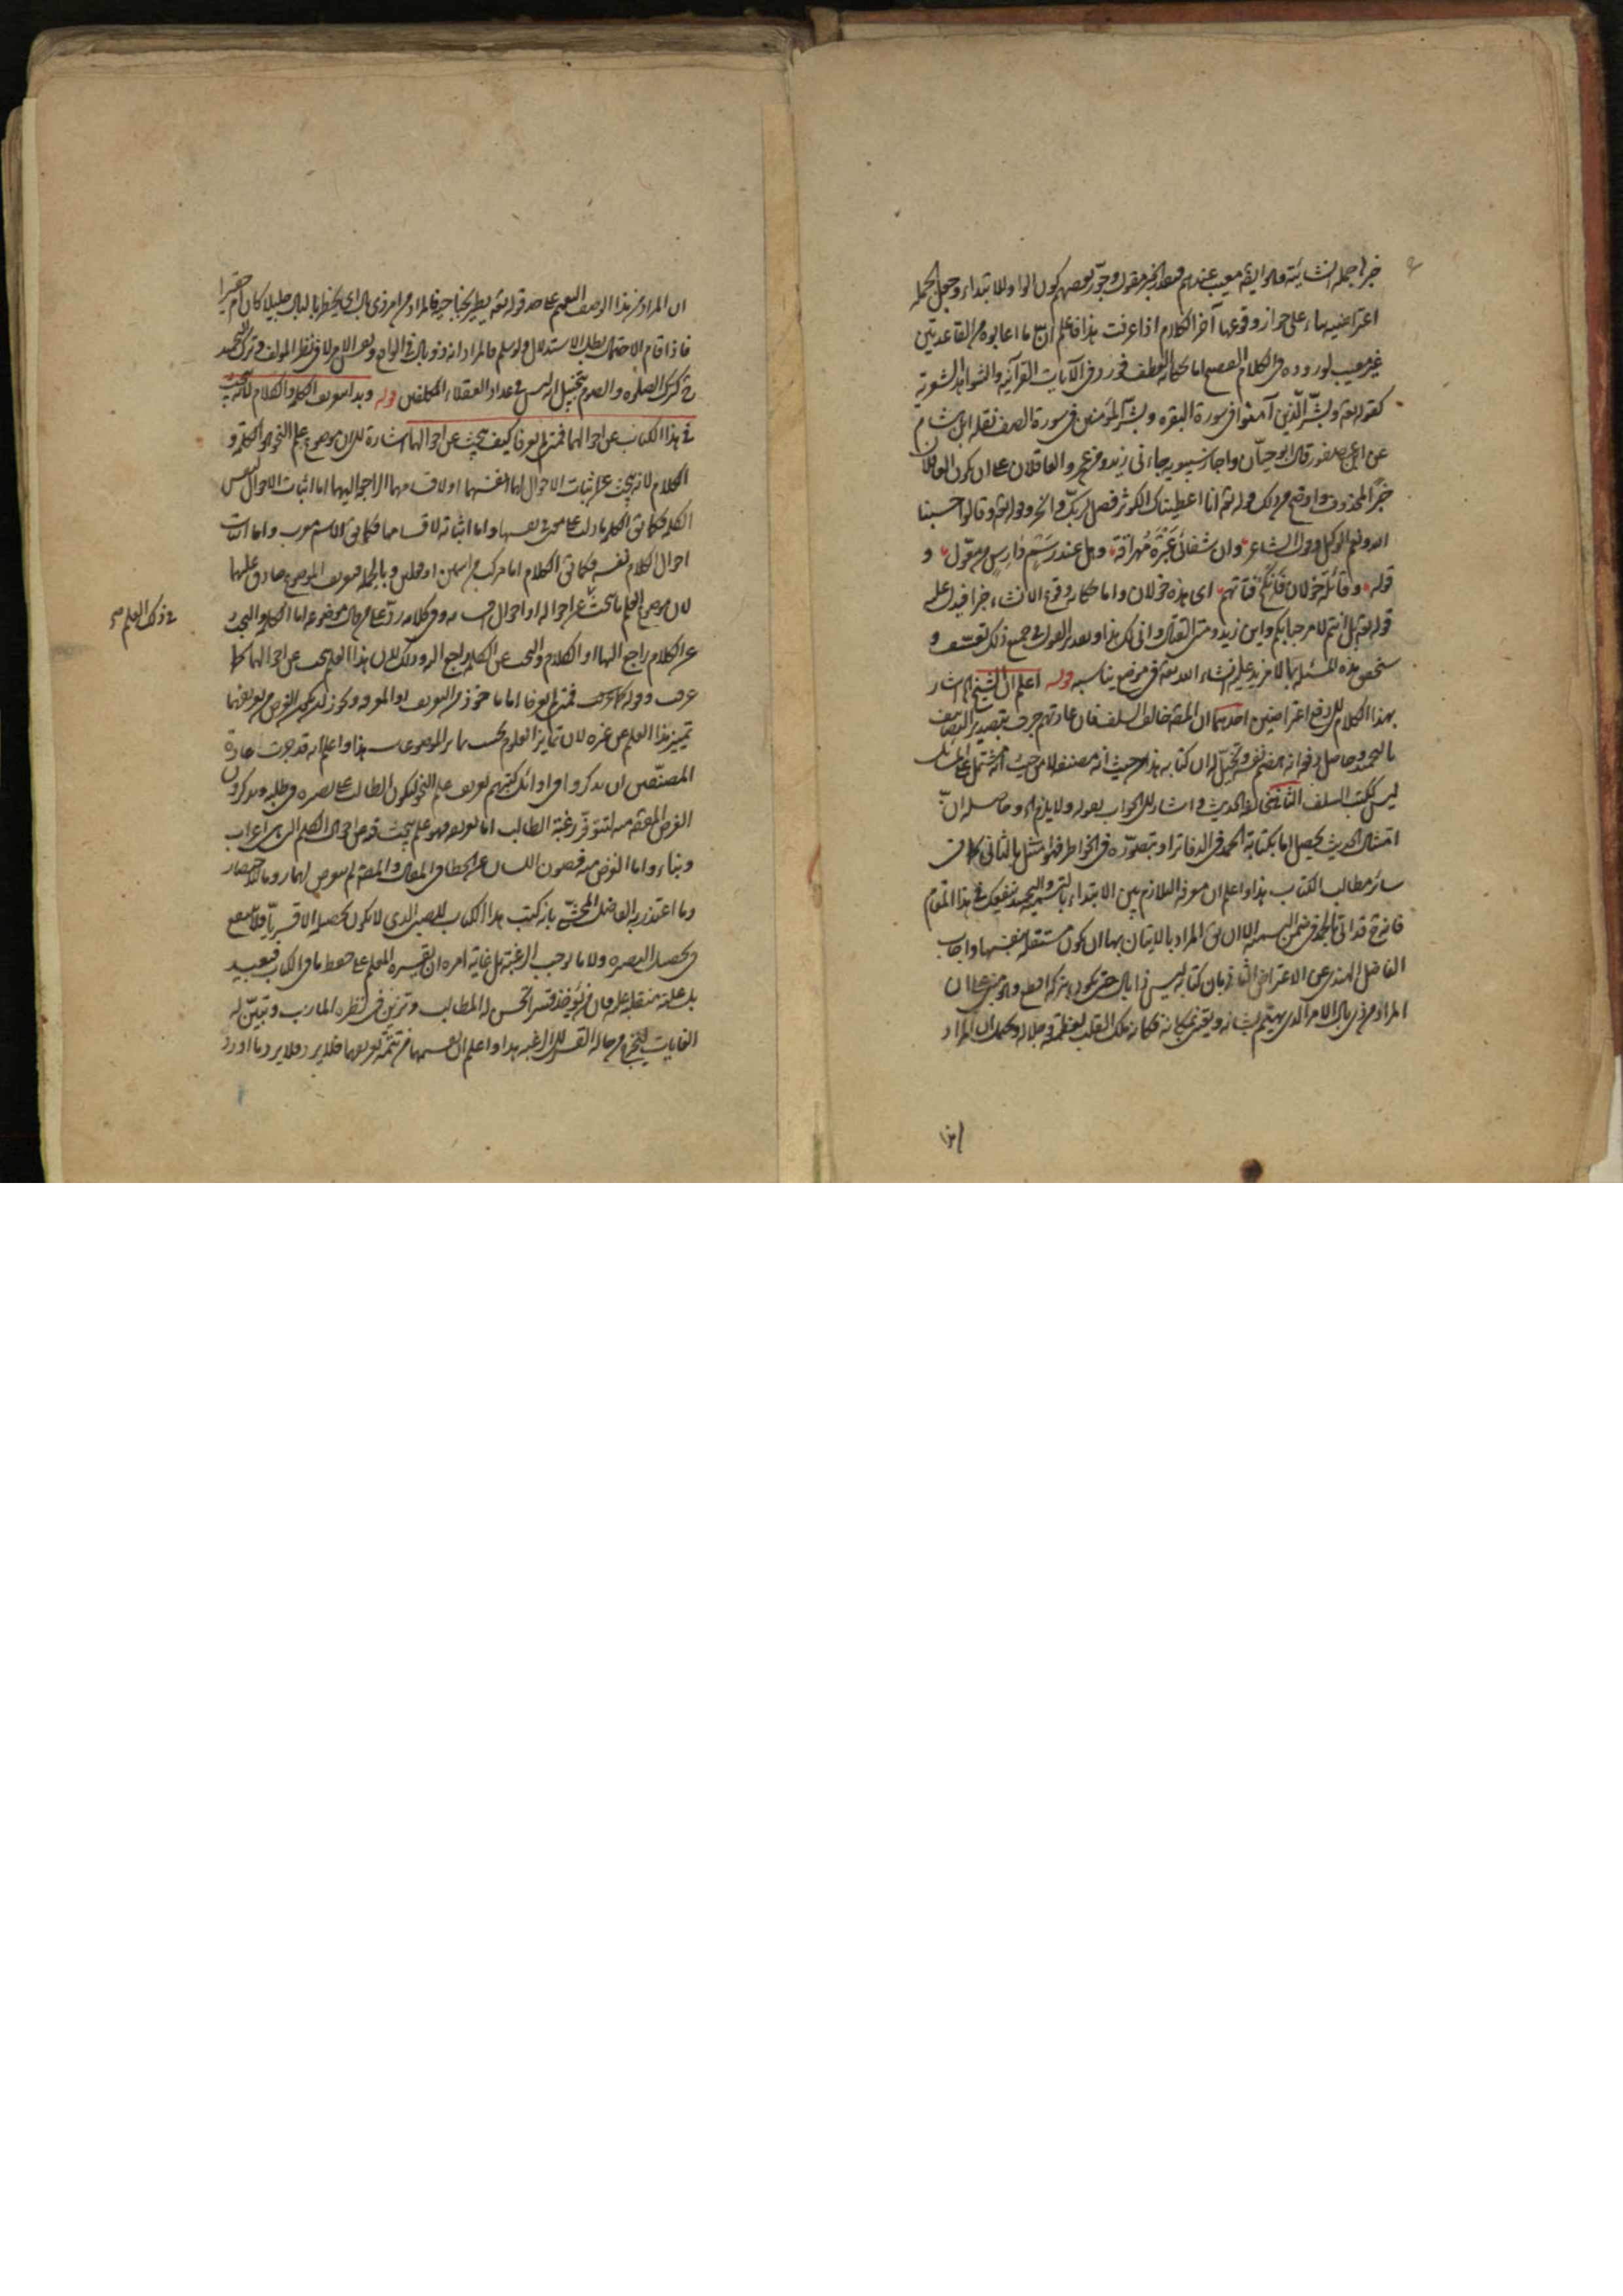 خبرا جملة انشائية وهو ايضا معيب عندهم فيقدر الخبر مقول وجوز بعضهم كون الواو للابتداء وجعل الجملة
اعتراضية بناء على جواز وقوعها آخر الكلام اذا عرفت هذا فاعلم ان ما اعابوه من القاعدتين
غير معيب لوروده في الكلام الفصيح اما حكاية العطف فورد في الآيات القرآنية والشواهد الشعرية
كقوله تعه وبشّر الّذين آمنوا في سورة البقرة وبشّر المؤمنين في سورة الصف نقله ابن هشام
عن ابن عصفور قال ابو حيّان واجاز سيبويه جاءني زيد ومن عمرو العاقلان على ان يكون العاقلان
خبرًا لمحذوف واوضح من ذلك قوله تعه انا اعطيناك الكوثر فصل لربّك وانحر وقوله تعه وقالوا حسبنا
الله ونعم الوكيل وقول الشاعر وان شفائي عَبْرَة مُهراقة وهل عند رسم دارس من معوّل و
قوله وقائلة خولان فانكح فتاتهم اى هذه خولان واما حكاية وقوع الانشاء خبرا فيدل عليه
قوله تعه بل انتم لا مرحبا بكم واين زيد ومتى القتال وانى لك هذا وتقدير القول في جميع ذلك تعسف و
سنحقق هذه المسئلة بما لا مزيد عليه انشاء الله تعه في موضع يناسبه قوله اعلم ان الشيخ اه اشار
بهذا الكلام الى دفع اعتراضين احدهما ان المصه خالف السلف فان عادتهم جرت بتصدير التصانيف
بالتحميد وحاصل دفعه انه هضم نفسه وتخيل له ان كتابه هذا من حيث انه مصنفه لا من حيث انه مشتمل على المسائل
ليس ككتب السلف الثاني مخالفة الحديث فاشار الى الجواب بقوله ولا يلزم اه وحاصله انّ
امتثال الحديث يحصل اما بكتابة الحمد في الدفاتر او بتصوّره في الخواطر فلم يمتثل بالثاني كما في
سائر مطالب الكتاب هذا واعلم ان معرفة التلازم بين الابتداء بالتسمية والتحميد ينفعك في هذا المقام
فانه ح قد اتى بالحمد في ضمن البسملة الا ان يق المراد بالاتيان بها ان يكون مستقلة بنفسها واجاب
الفاضل الهندي عن الاعتراض الثاني بان كتابه ليس ذا بال حتى يكون بتركه اقطع وهو مبني على ان
المراد من ذي بال الامر الذى يهتم بشانه ويعتنى بمكانه فكانه ملك القلب لعظمته وجلاله ويحتمل ان المراد
ان المراد من هذا الوصف التعميم على حد قوله تعه يطير بجناحيه فالمراد من امر ذي بال اى يخطر بالبال جليلا كان ام حقيرا
فاذا قام الاحتمال بطل الاستدلال ولو سلم فالمراد انه ذو بال في الواقع ونفس الامر لا في نظر المؤلف وترك التحميد
ح كترك الصلوة والصوم بتخيل انه ليس في عداد العقلاء المكلفين قوله وبدأ بتعريف الكلمة والكلام لانه يبحث
في هذا الكتاب عن احوالهما فمتى لم يعرفا كيف يبحث عن احوالهما اشارة الى ان موضوع علم النحو هو الكلمة و
الكلام لانه يبحث عن اثبات الاحوال اما لانفسهما او لاقسامهما الراجع اليهما اما اثبات الاحوال لنفس
الكلمة فكما يق الكلمة ما دل على معنى في نفسها واما اثباته لاقسامها فكما يق الاسم معرب واما اثبات
احوال الكلام نفسه فكما يق الكلام اما مركب من اسمين او فعلين وبالجملة فتعريف الموضوع صادق عليهما
لان موضوع العلم ما يبحث عن احواله او احوال اقسامه وفي كلامه ردّ على من قال موضوعه اما الكلمة والبحث
عن الكلام راجع اليها او الكلام والبحث عن الكلمة راجع اليه وذلك لان هذا العلم يبحث عن احوالهما كما
عرفت وقوله فمتى لم يعرفا اما ماخوذ من التعريف او المعرفة
تمييز هذا العلم عن غيره لان تمايز العلوم بحسب تمايز الموضوعات هذا واعلم انه قد جرت عادة
المصنّفين ان يذكروا في اوائل كتبهم تعريف علم النحو ليكون الطالب على بصيرة في طلبه ويذكرون
الغرض المقصود منه لتتوفّر رغبة الطالب اما تعريفه فهو علم يبحث فيه عن احوال الكلم الثلاث اعراب
وبناء واما الغرض منه فصون اللسان عن الخطا في المقال والمصه لم يتعرض لهما روما للاختصار
وما اعتذر به الفاضل المحشّي بانه كتب هذا الكتاب للصبى الذى لا يكون تحصيله الا قسريا فلا ينفع
في تحصيل البصيرة ولا ما يوجب الرغبة بل غاية امره ان يقسره المعلم على حفظ ما في الكتاب فبعيد
الغايات ليخرج من حالة القسر الى الرغبة هذا واعلم ان تقسيمها من تتمة تعريفها فلا يرد ما اورد
في ذلك العلم صح